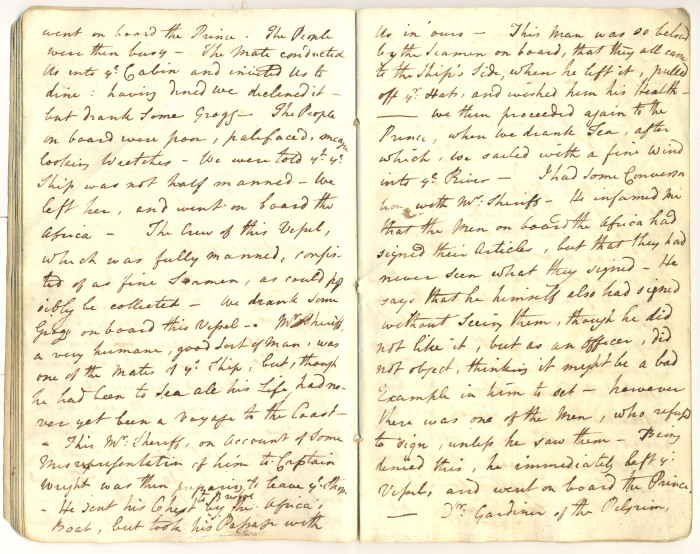 went on board the Prince. The People
were then busy – The Mate conducted
Us into yᵉ Cabin and invited Us to
dine: having dined we declined it –
but drank Some Grogg – The People
on board were poor, palefaced, meagre
looking Wretches – We were told yᵗ yᵉ
Ship was not half manned – We
left her, and went on board the
Africa – The Crew of this Vessel,
which was fully manned, consis-
ted of as fine Seamen, as could pos
sibly be collected – We drank Some
Grogg on board this Vessel – Mʳ Sheriff,
a very humane, good Sort of Man, was
one of the Mates of yᵉ Ship; but, though
he had been to Sea all his Life, had ne-
ver yet been a Voyage to the Coast –
– This Mʳ Sheriff, on Account of Some
Misrepresentation of him to Captain
Wright was then preparing to leave yᵉ Ship.
– He sent his Chest to Bristol by the Africa's
Boat, but took his Passage with
Us in ours – This Man was so beloved
by the Seamen on board, that they all came
to the Ship's Side, when he left it, pulled
off yʳ Hats, and wished him his Health –
— We then proceeded again to the
Prince, when we drank Tea, after
which, we sailed with a fine Wind
into yᵉ River – I had some Conversa
tion with Mʳ Sheriff – He informed me
that the Men on board the Africa had
signed their Articles, but that they had
never seen what they signed – He
says that he himself also had signed
without Seeing them, though he did
not like it, but as an Officer, did
not object, thinking it might be a bad
Example in him to set – however
there was one of the Men, who refused
to sign, unless he saw them – Being
denied this, he immediately left yᵉ
Vessel, and went on board the Prince.
— Dʳ Gardiner of the Pilgrim,